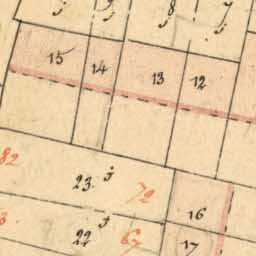 8
15 14 13 12
82
23. 72
16
22 67
17